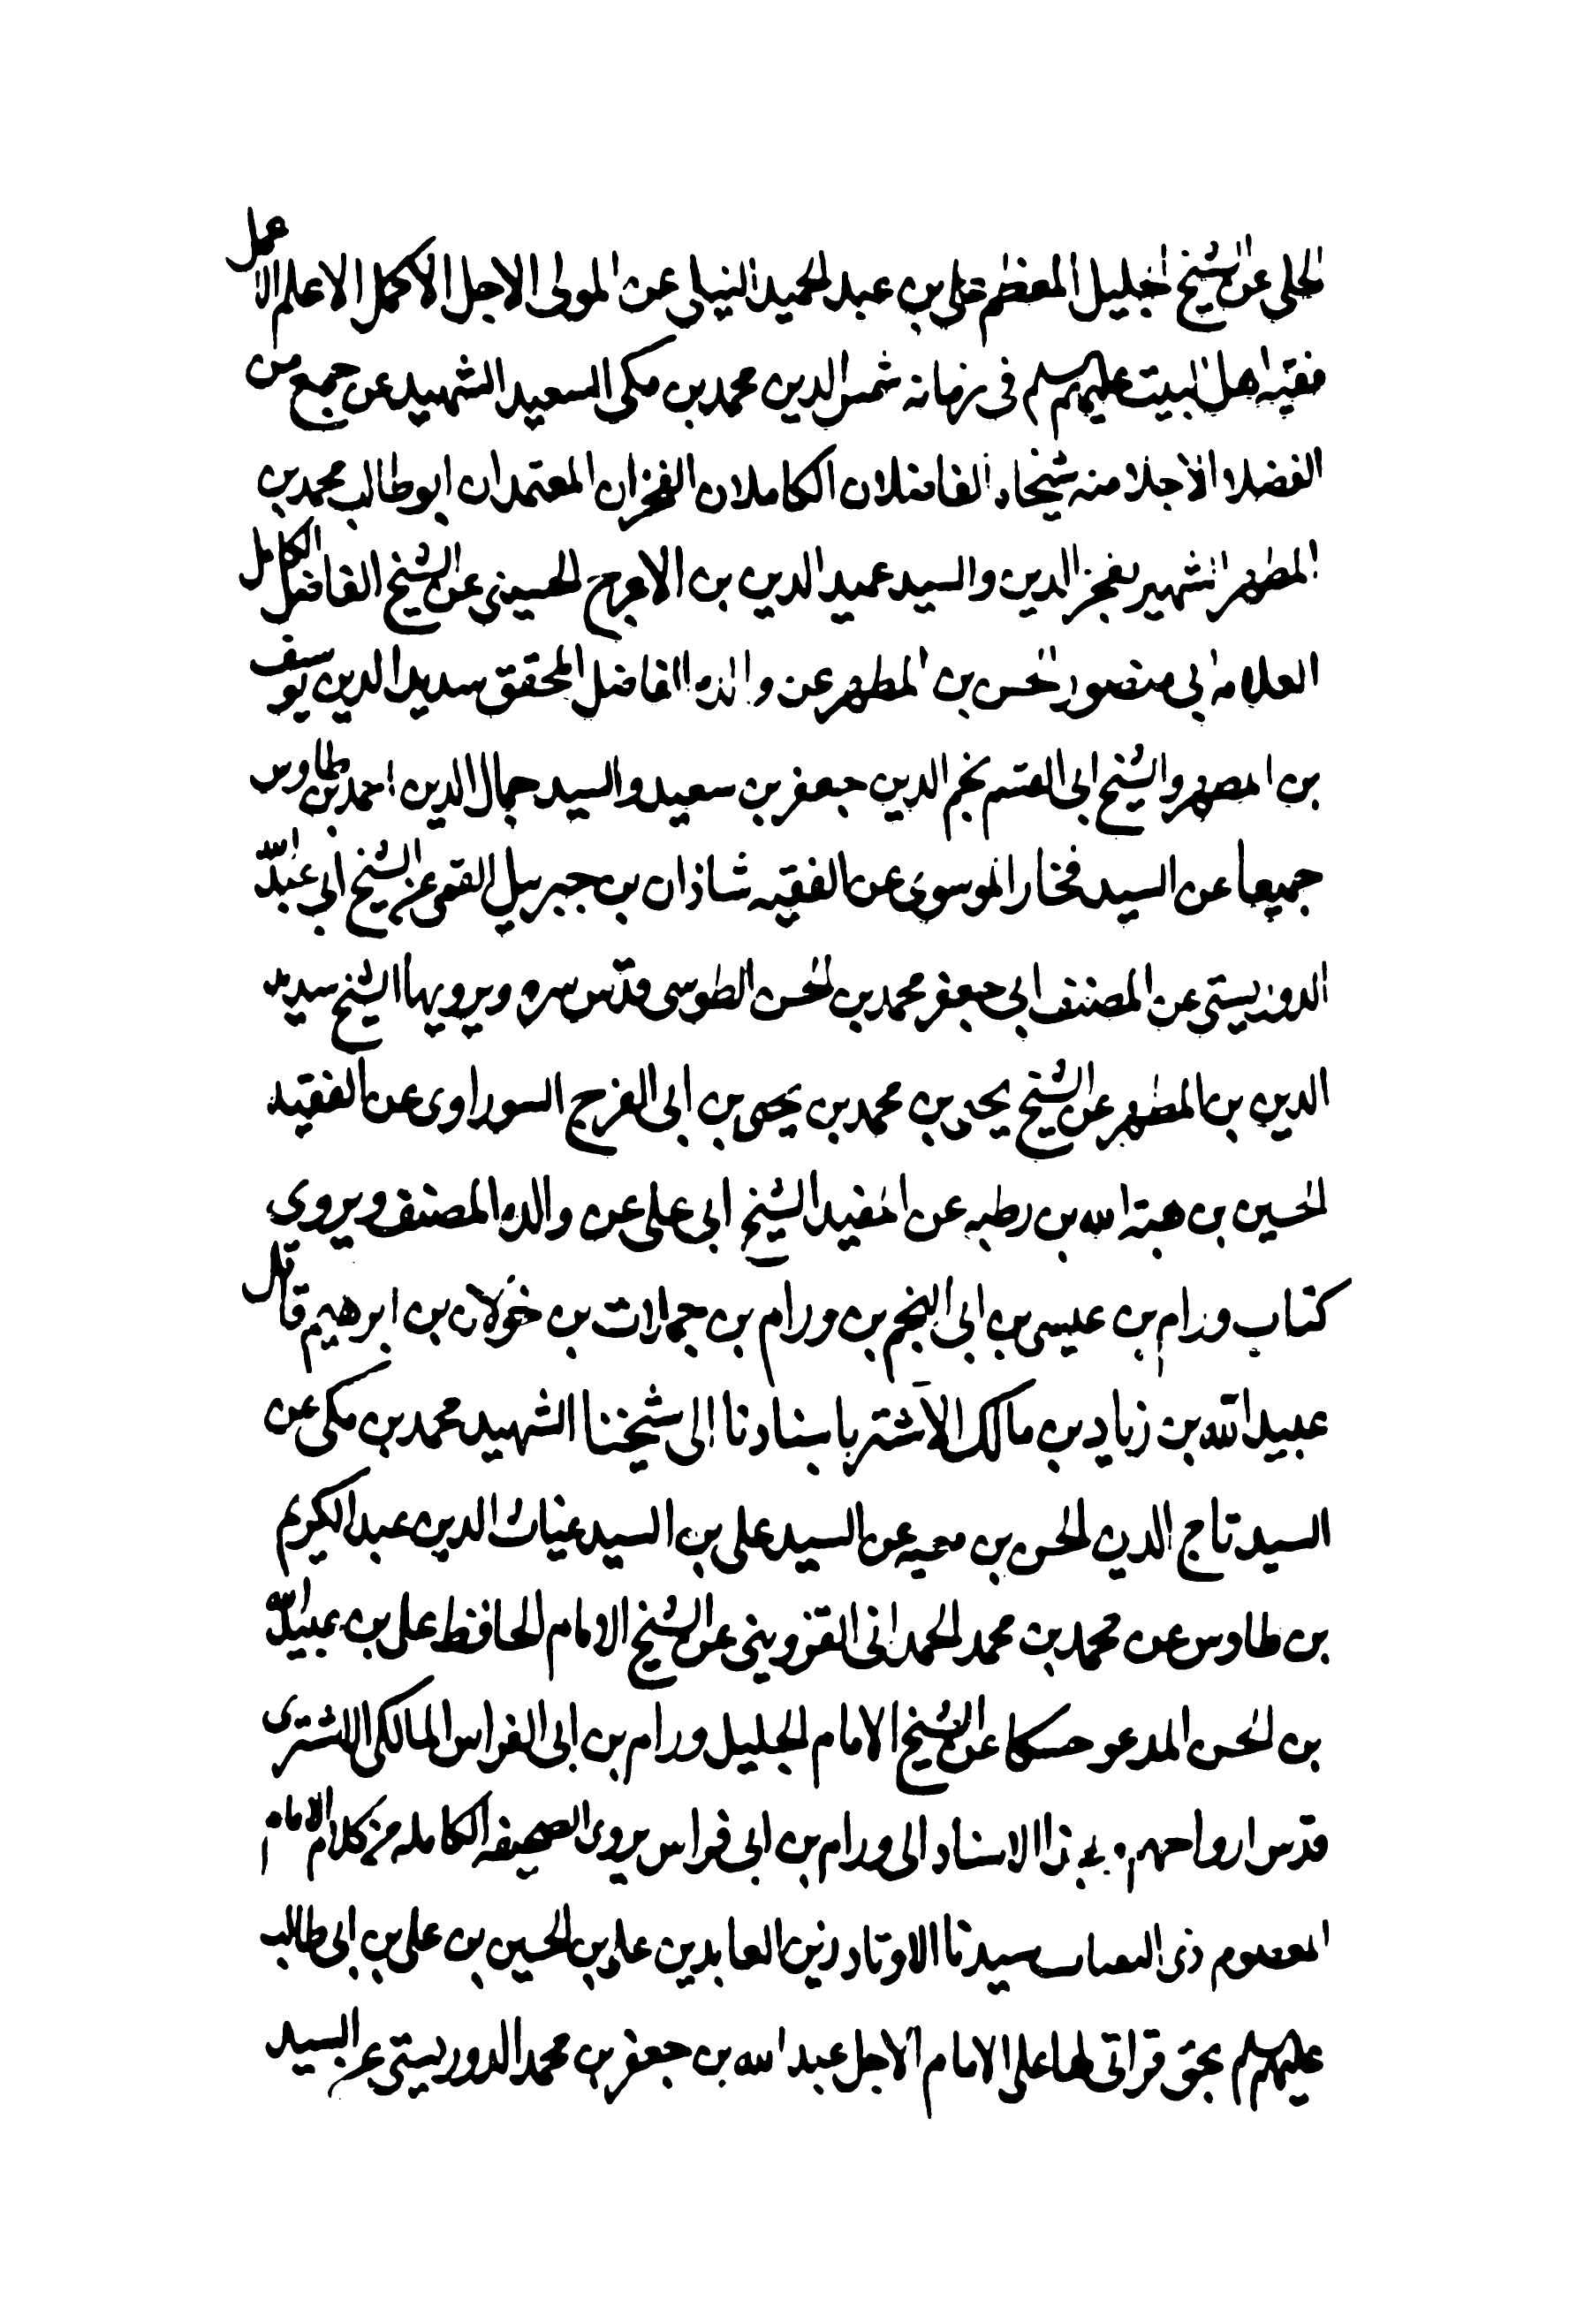 الحلي عن الشيخ الجليل المعظم علي بن عبد الحميد النيلي عن المولى الاجل الاكمل الاعلم الاعمل
فقيه اهل البيت عليهم سلم في زمانه شمس الدين محمد بن مكي السعيد الشهيد عن جمع من
الفضلا الاجلا منه شيخاه الفاضلان الكاملان الفخران المعتمدان ابو طالب محمد بن
المطهر الشهير بفخر الدين والسيد عميد الدين بن الاعرج الحسيني عن الشيخ الفاضل الكامل
العلامه ابي منصور الحسن بن المطهر عن والده الفاضل المحقق سديد الدين يوسف
بن المطهر والشيخ ابي القسم نجم الدين جعفر بن سعيد والسيد جمال الدين احمد بن طاوس
جميعا عن السيد فخار الموسوي عن الفقيه شاذان بن جبريل القمي عن الشيخ ابي عبد الله
الدوريستي عن المصنف ابي جعفر محمد بن الحسن الطوسي قدس سره ويرويها الشيخ سديد
الدين بن المطهر عن الشيخ يحيى بن محمد بن يحيى بن ابي الفرج السوراوي عن الفقيه
الحسين بن هبة الله بن رطبه عن المفيد الشيخ ابي علي عن والده المصنف ويروي
كتاب ورام بن عيسى بن ابي النجم بن ورام بن حمدان بن خولان بن ابرهيم قاتل
عبيد الله بن زياد بن مالك الاشتر باسنادنا الى شيخنا الشهيد محمد بن مكي عن
السيد تاج الدين الحسن بن معيه عن السيد علي بن السيد غياث الدين عبد الكريم
بن طاوس عن محمد بن محمد الحمداني القزويني عن الشيخ الامام الحافظ علي بن عبيد الله
بن الحسن المدعو حسكا عن الشيخ الامام الجليل ورام بن ابي الفراس المالكي الاشتري
قدس ارواحهم وبهذا الاسناد الى ورام بن ابي فراس يروي الصحيفه الكامله من كلام الامام
المعصوم ذي سيدنا الاوتاد زين العابدين علي بن الحسين بن علي بن ابي طالب
عليهم سلم بحق قراتي لها على الامام الاجل عبد الله بن جعفر بن محمد الدوريستي عن السيد